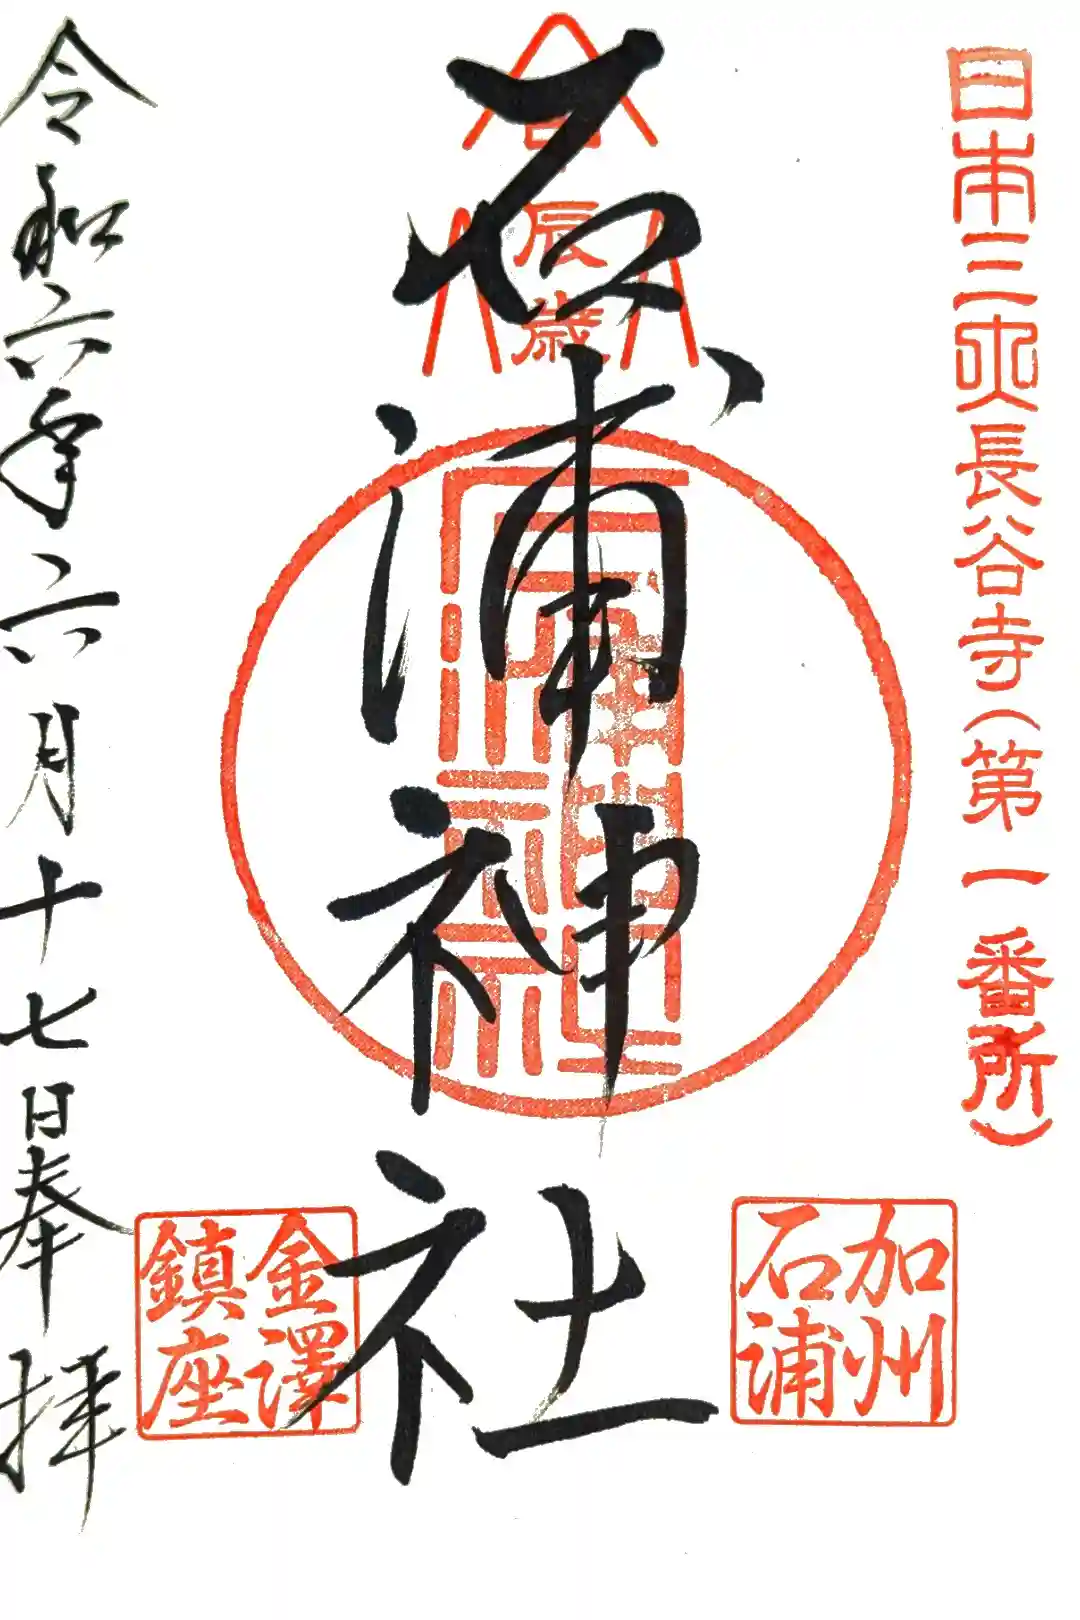 日本三大長谷寺（第一番所）
加州
石浦
甲辰歳
石浦神社
石浦神社
金澤
鎮座
令和六年六月十七日奉拝